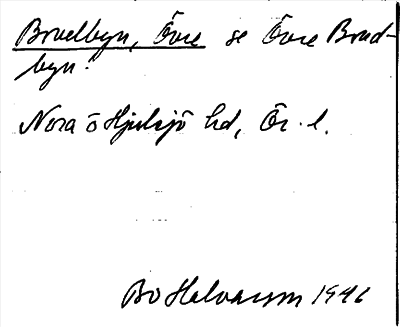 Brudbyn, Övre se Övre Brud-
byn.
Nora o Hjulsjö hd, Ör. l.
Bo Halvarson 1946